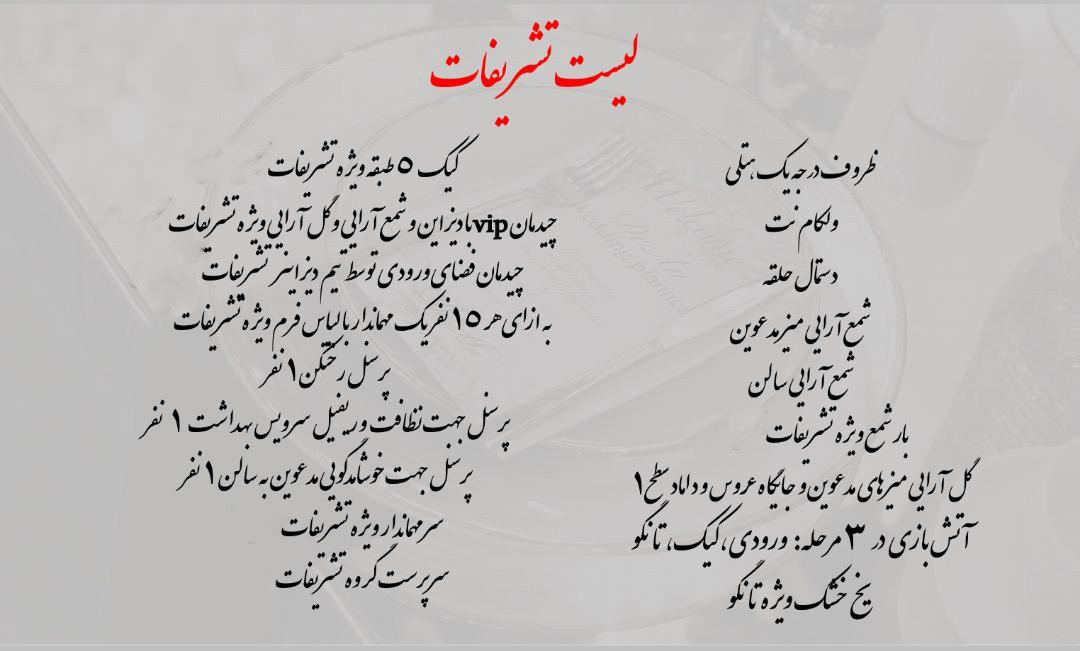 لیست تشریفات
ظروف درجه یک هتلی
ولکام نت
دستمال حلقه
شمع آرایی میز مدعوین
شمع آرایی سالن
بار شمع ویژه تشریفات
گل آرایی میزهای مدعوین و جایگاه عروس و داماد سطح ۱
آتش بازی در ۳ مرحله: ورودی، کیک، تانگو
یخ خشک ویژه تانگو
کیک ۵ طبقه ویژه تشریفات
چیدمان vip با دیزاین و شمع آرایی و گل آرایی ویژه تشریفات
چیدمان فضای ورودی توسط تیم دیزاینر تشریفات
به ازای هر ۱۵ نفر یک مهماندار با لباس فرم ویژه تشریفات
پرسنل رختکن ۱ نفر
پرسنل جهت نظافت و ریفیل سرویس بهداشت ۱ نفر
پرسنل جهت خوشامدگویی مدعوین به سالن ۱ نفر
سرمهماندار ویژه تشریفات
سرپرست گروه تشریفات
Welcome
wedding planner